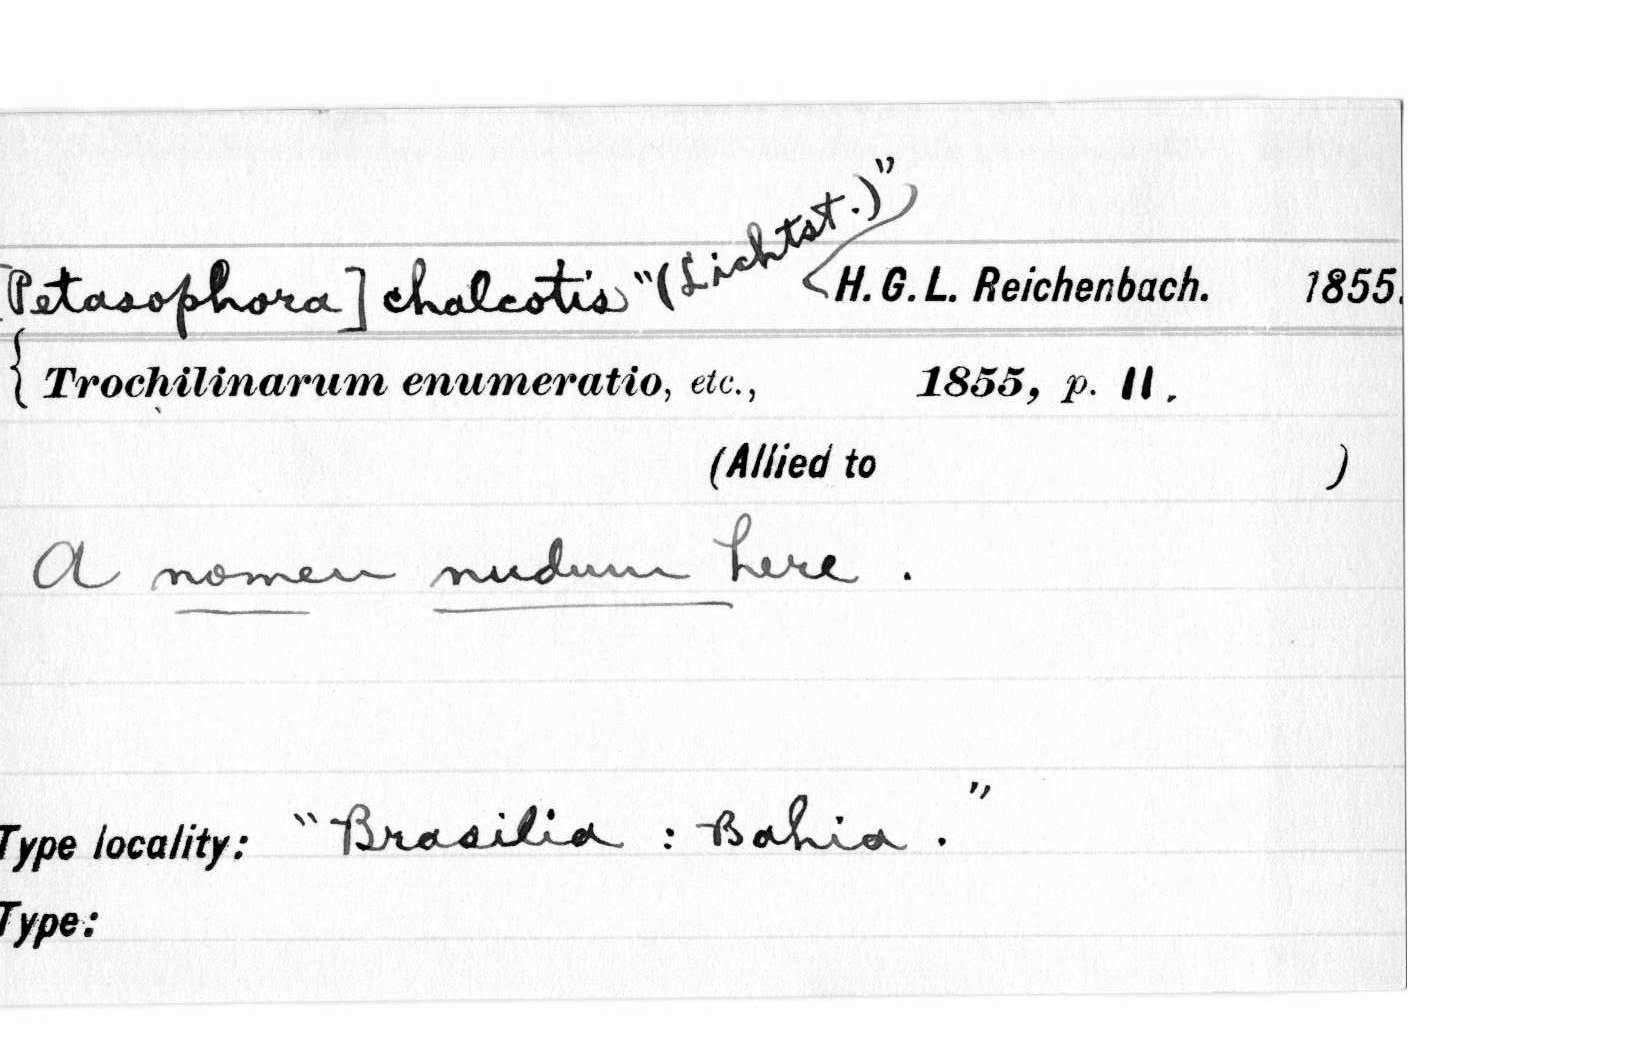 [Petasophora] chalcotis "(Lichtst.)" H. G. L. Reichenbach. 1855.
{ Trochilinarum enumeratio, etc., 1855, p. 11.
(Allied to )
A nomen nudum here.
Type locality: "Brasilia : Bahia."
Type: